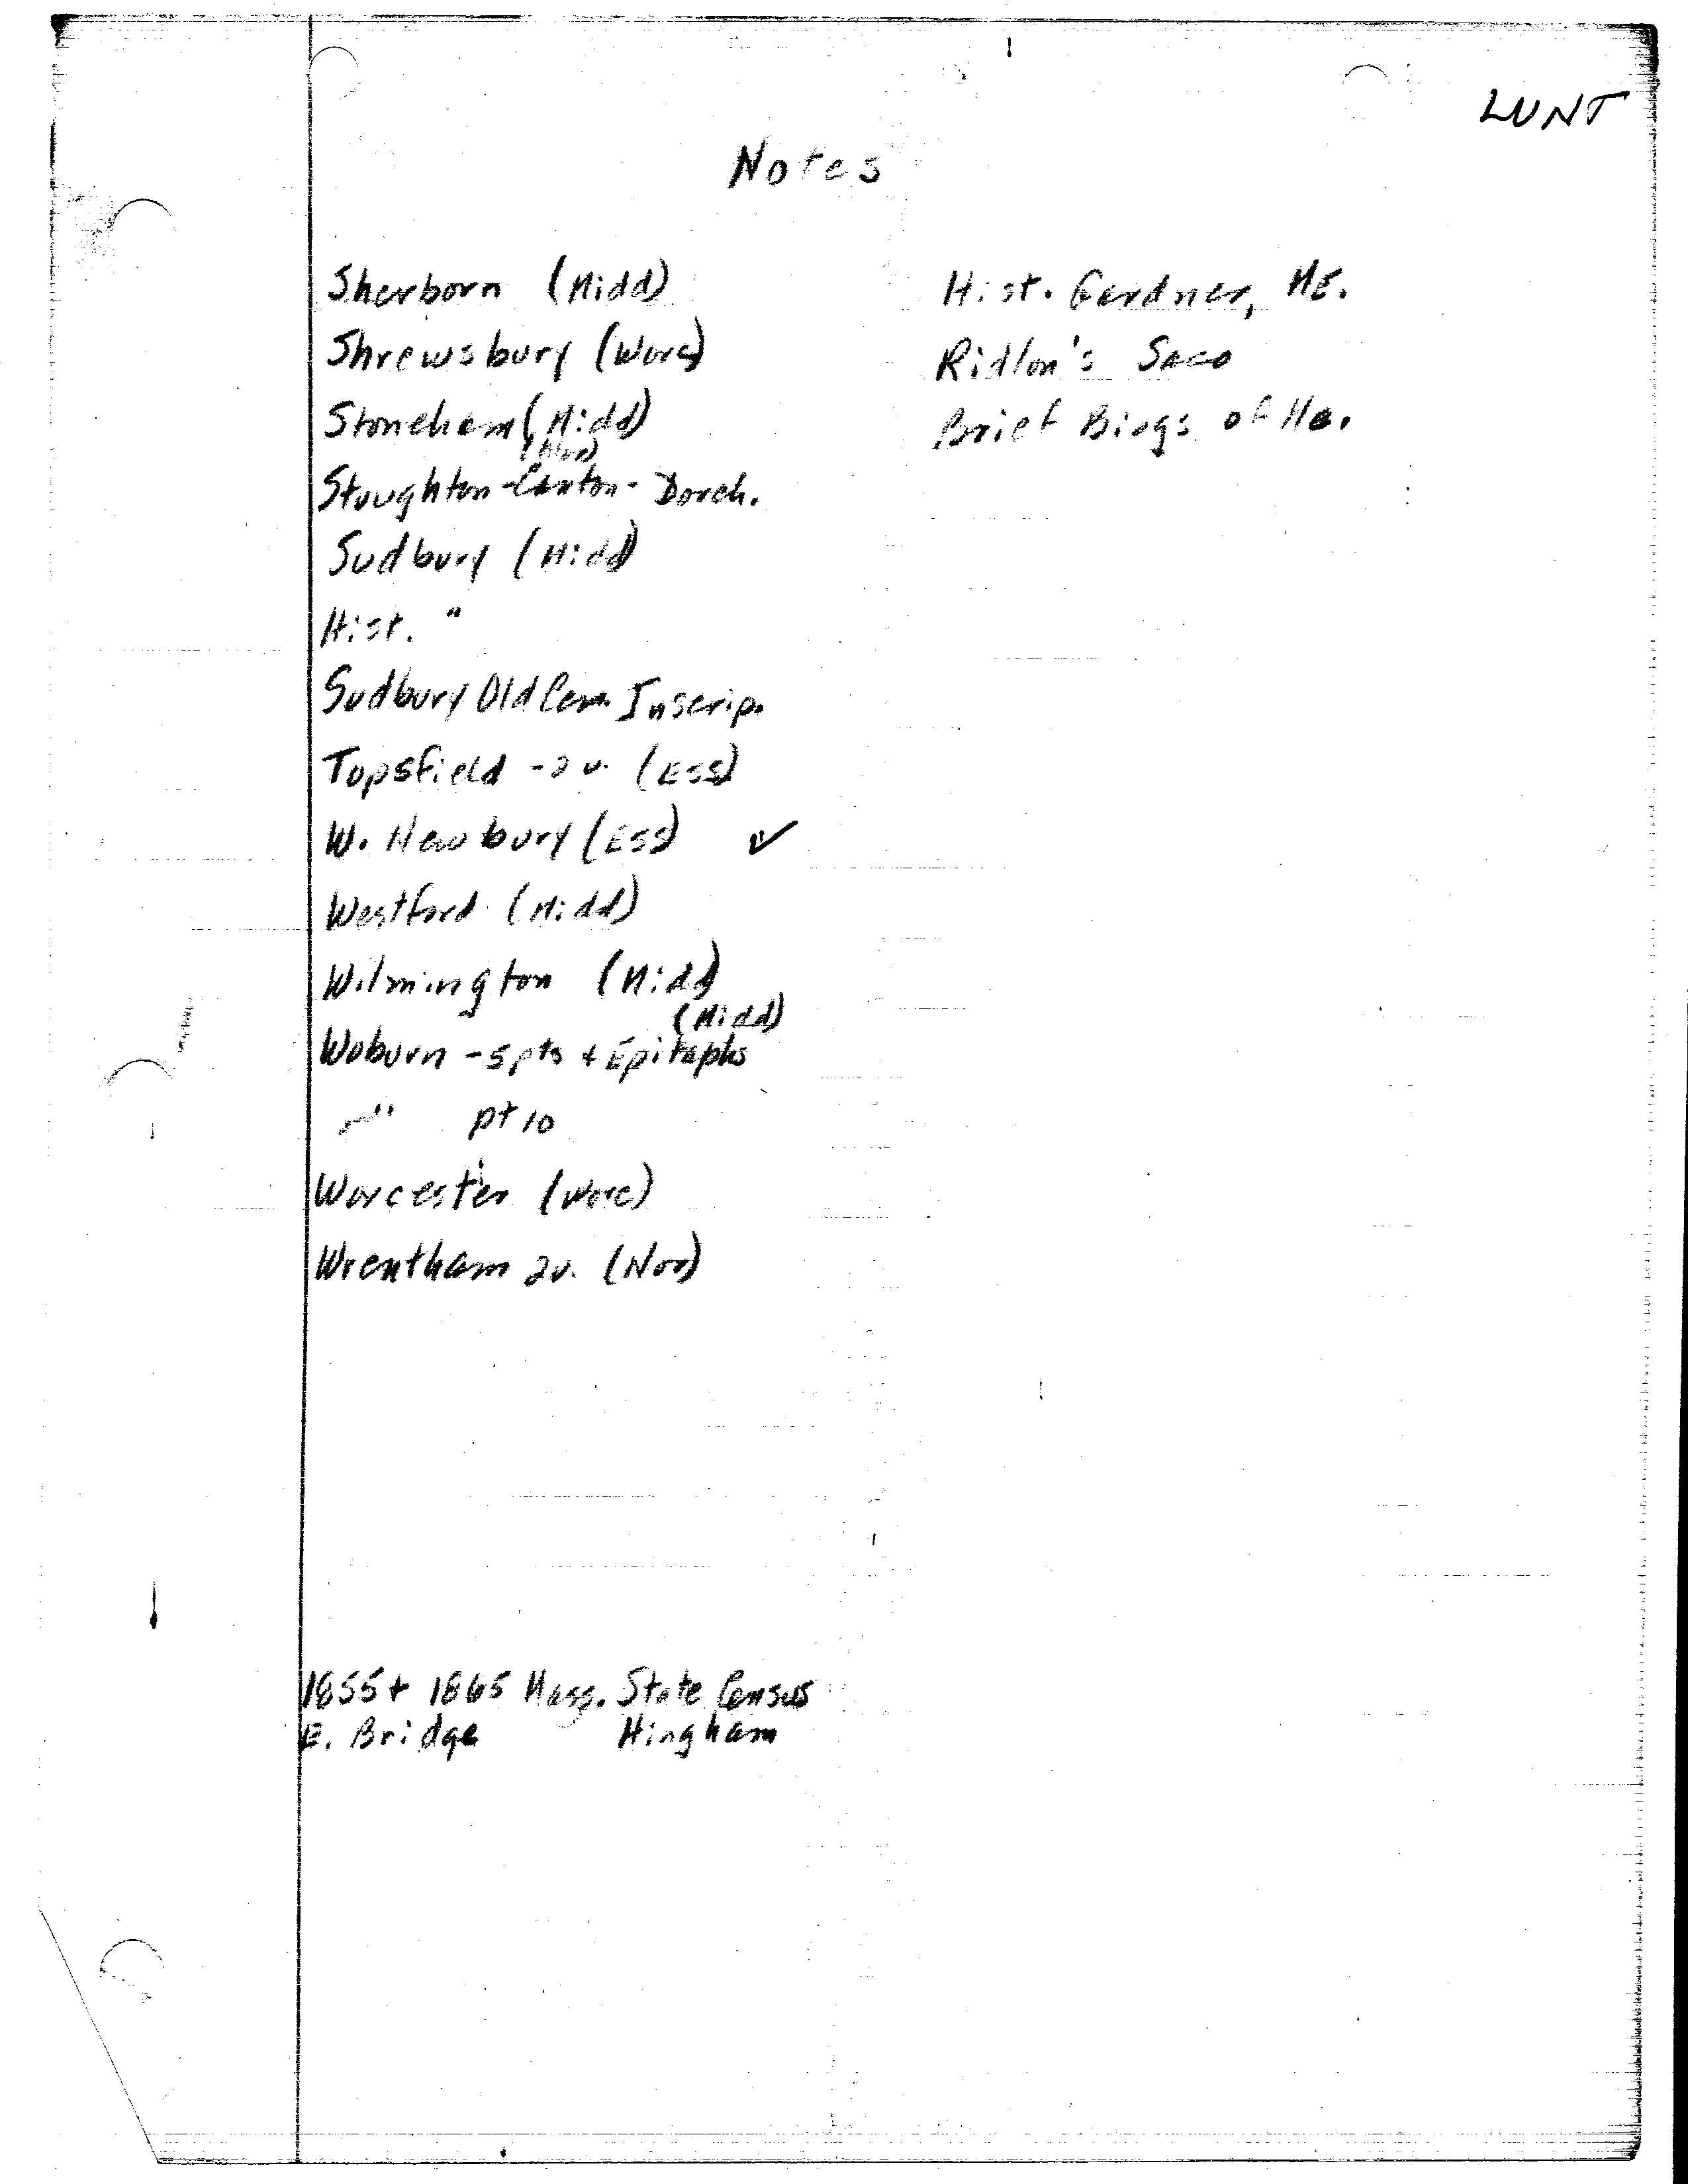 LUNT
Notes
Sherborn (Midd)
Shrewsbury (Worc)
Stoneham (Midd)
(Nor)
Stoughton-Canton-Dorch.
Sudbury (Midd)
Hist. "
Sudbury Old Cem. Inscrip.
Topsfield - 2 v. (Ess)
W. Newbury (Ess) ✓
Westford (Midd)
Wilmington (Midd)
(Midd)
Woburn - 5 pts + Epitaphs
" pt 10
Worcester (Worc)
Wrentham 2v. (Nor)
Hist. Gardner, ME.
Ridlon's Saco
Brief Biogs of Me.
1855 + 1865 Mass. State Census
E. Bridge Hingham